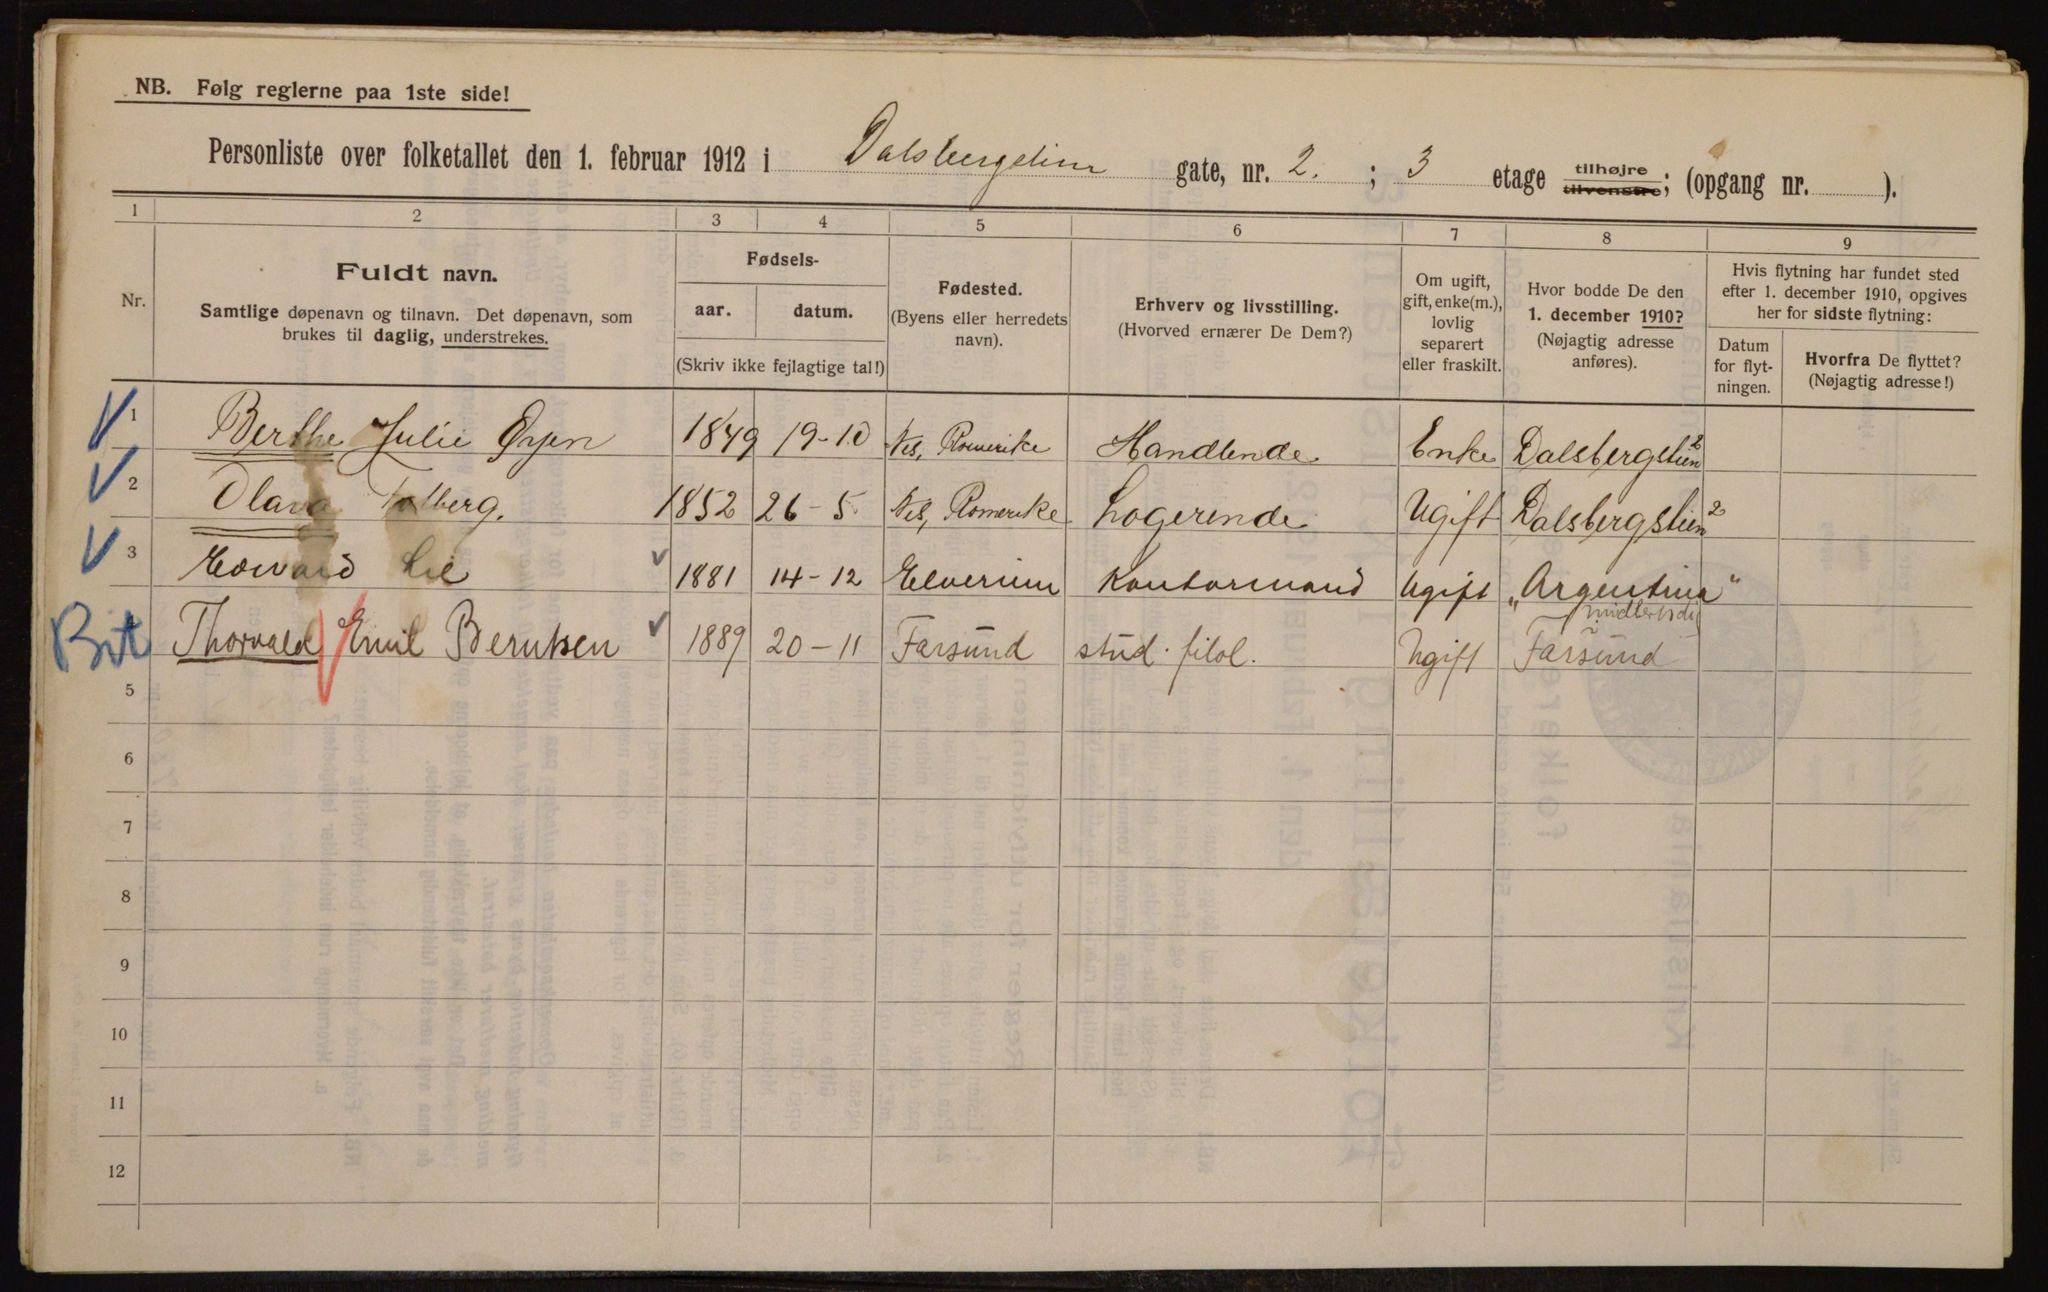 NB. Følg reglerne paa 1ste side!
Personliste over folketallet den 1. februar 1912 i Dalsbergstien gate, nr. 2. ; 3 etage tilhøjre tilvenstre; (opgang nr. ).
1 2 3 4 5 6 7 8 9
Nr.
Fuldt navn.
Samtlige døpenavn og tilnavn. Det døpenavn, som
brukes til daglig, understrekes.
Fødsels-
aar. datum.
(Skriv ikke fejlagtige tal!)
Fødested.
(Byens eller herredets
navn).
Erhverv og livsstilling.
(Hvorved ernærer De Dem?)
Om ugift,
gift, enke(m.),
lovlig
separert
eller fraskilt.
Hvor bodde De den
1. december 1910?
(Nøjagtig adresse
anføres).
Hvis flytning har fundet sted
efter 1. december 1910, opgives
her for sidste flytning:
Datum
for flyt-
ningen.
Hvorfra De flyttet?
(Nøjagtig adresse!)
1 Berthe Julie 1849 19-10 Nes, Romerike Handlende Enke Dalsbergstien 2
2 Olava 1852 26-5 Nes, Romerike Logerende Ugift Dalsbergstien 2
3 Edward Lie 1881 14-12 Elverum Kontormand Ugift "Argentina"
midlertidig
Bit Thorvald Emil Berntsen 1889 20-11 Farsund stud. filol. Ugift Farsund
5
6
7
8
9
10
11
12